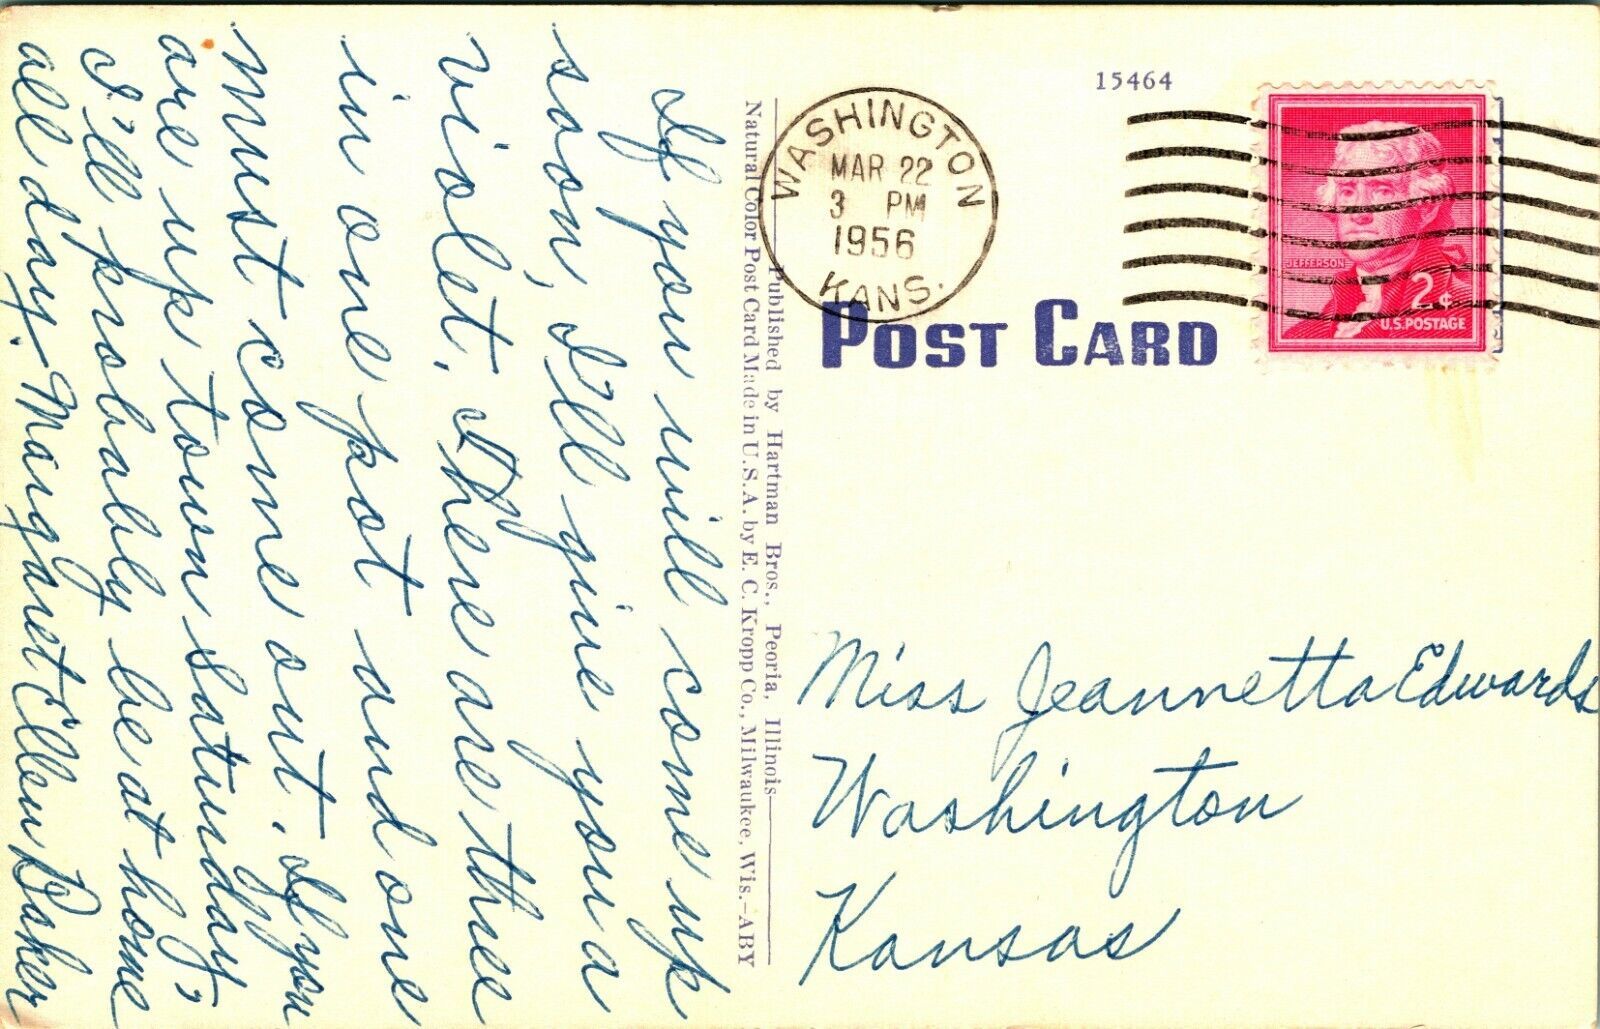 If you will come up
soon, I'll give you a
violet. There are three
in one pot and one
must come out. If you
are up town Saturday,
I'll probably be at home
all day. Margaret Ellen Baker
Published by Hartman Bros., Peoria, Illinois
Natural Color Post Card Made in U.S.A. by E. C. Kropp Co., Milwaukee, Wis.—ABY
15464
WASHINGTON
MAR 22
3 PM
1956
KANS.
JEFFERSON
2¢
U.S. POSTAGE
POST CARD
Miss Jeannetta Edwards
Washington
Kansas